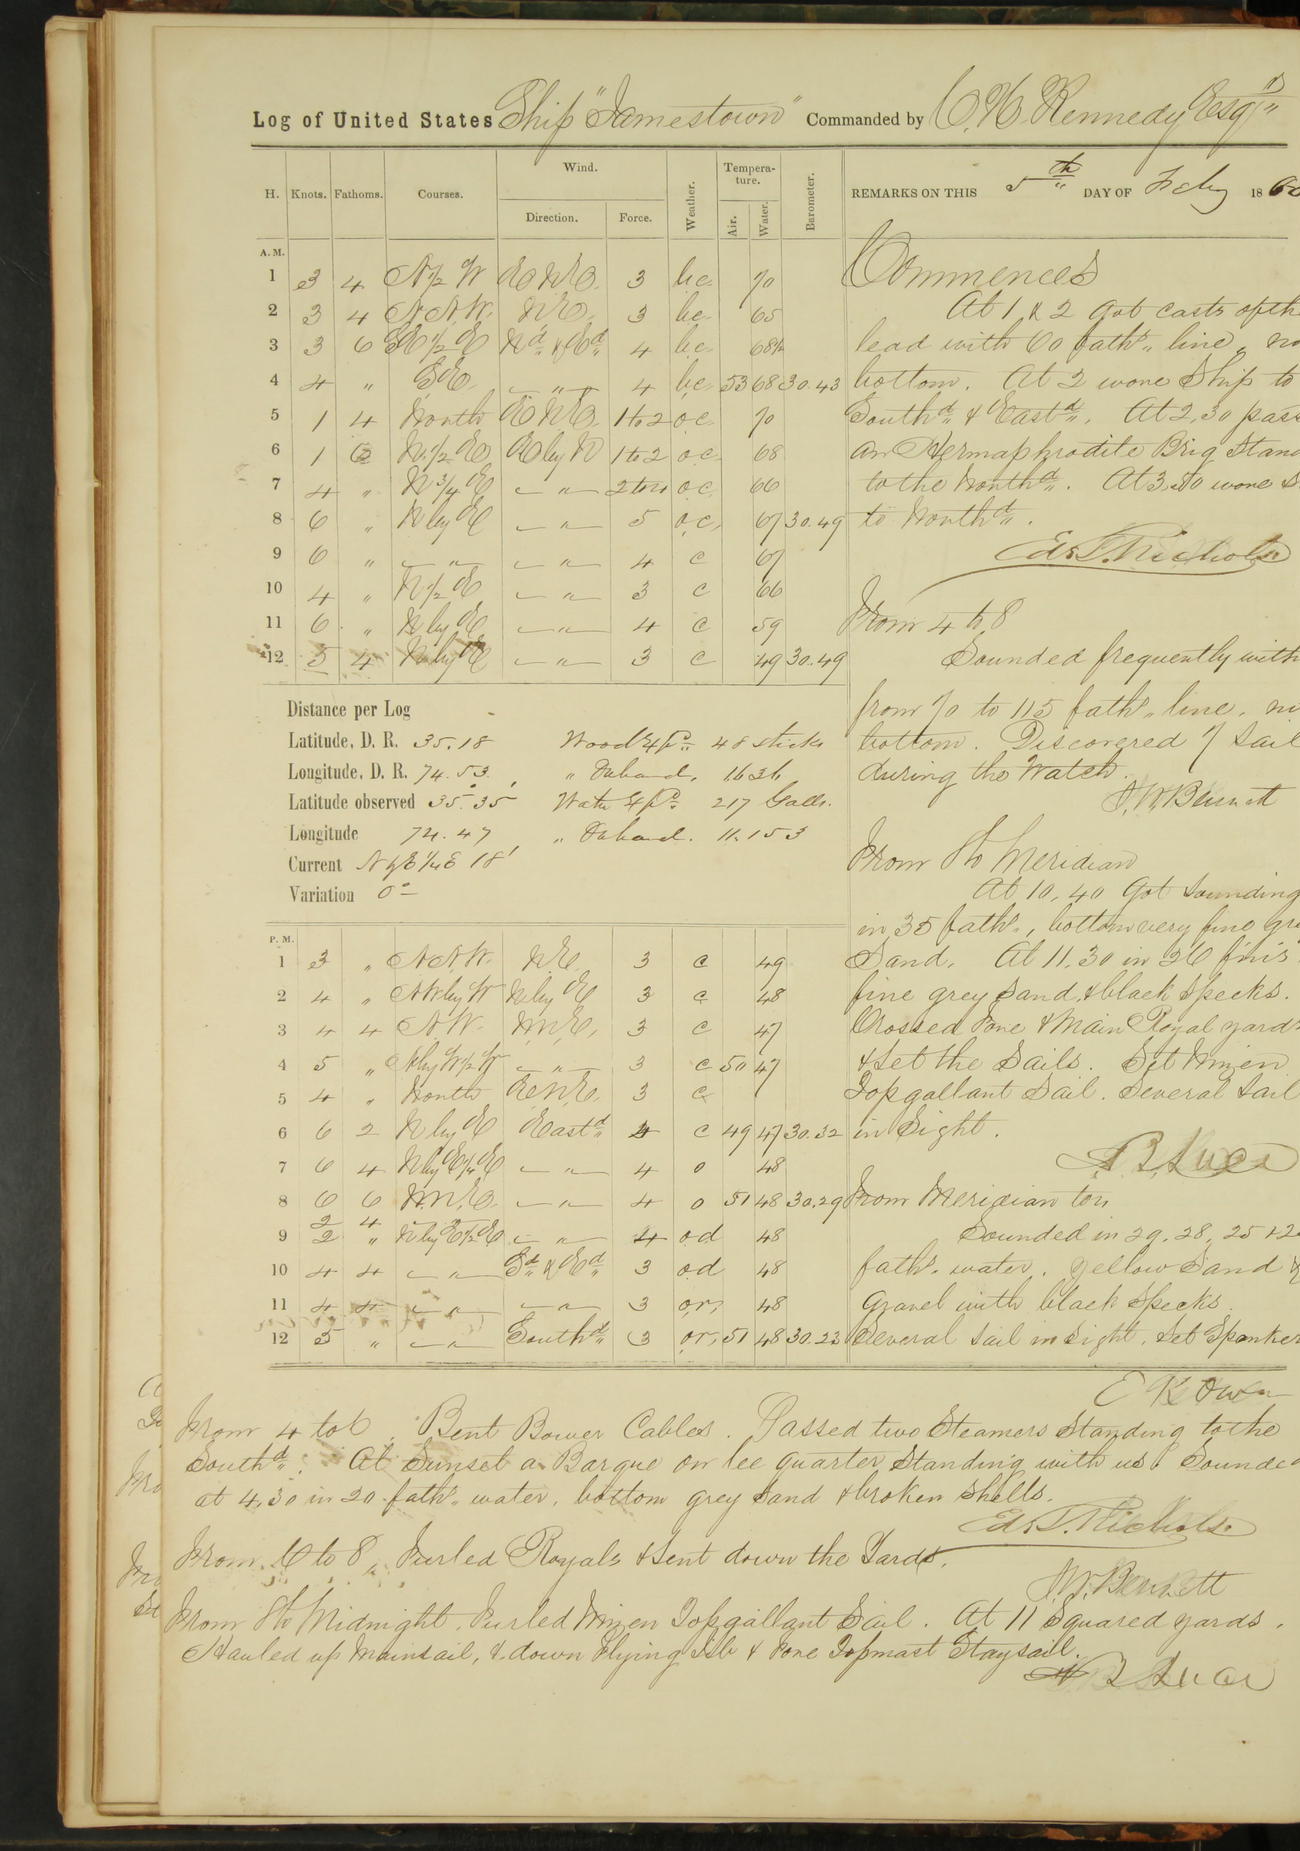 Log of United States Ship "Jamestown" Commanded by C. H. Kennedy Esqr
H. Knots. Fathoms. Courses. Wind. Direction. Force. Weather. Temperature. Air. Water. Barometer. REMARKS ON THIS 5th DAY OF Feby 1860
A. M.
1 3 4 N ½ W ENE 3 bc 70
2 3 4 N.N.W. NE 3 bc 65
3 3 6 SE ½ E Nd & Ed 4 bc 68½
4 4 " SE — " — 4 bc 53 68 30.43
5 1 4 North ENE 1 to 2 oc 70
6 1 6 N. ½ E E by N 1 to 2 oc 68
7 4 " N ¾ E — " — 2 to 4 oc 66
8 6 " N by E — " — 5 oc, 67 30.49
9 6 " — " — — " — 4 c 67
10 4 " N ½ E — " — 3 c 66
11 6 " N by E — " — 4 c 59
12 5 4 N by E — " — 3 c 49 30.49
Distance per Log -
Latitude, D. R. 35.18 Wood Exp. 48 sticks
Longitude, D. R. 74.53 " On hand. 1636
Latitude observed 35° 35' Water Exp. 217 Galls.
Longitude 74.47 " On hand. 11.153
Current 18'
Variation 0°
P. M.
1 3 " N.N.W. NE 3 c 49
2 4 " NW by W N by E 3 c 48
3 4 4 N.W. N.N.E. 3 c 47
4 5 " N by W ½ W — " — 3 c 50 47
5 4 " North E.N.E. 3 c
6 6 2 N by E Eastd 4 c 49 47 30.32
7 6 4 N by E ¼ E — " — 4 o 48
8 6 6 N.N.E. — " — 4 o 51 48 30.29
9 2 4 2 " N by E ½ E — " — 4 od 48
10 4 4 — " — Sd & Ed 3 od 48
11 4 4 — " — — " — 3 or, 48
12 5 " — " — Southd 3 or, 51 48 30.23
Commences
At 1 & 2 got casts of th
lead with 60 fath's line, no
bottom. At 2 wore Ship to
Southd & Eastd. At 2.30 pass
an Hermaphrodite Brig Stand
to the Northd. At 3.50 wore S
to Northd.
Ed. T. Nichols
From 4 to 8
Sounded frequently with
from 70 to 115 fath's line. no
bottom. Discovered 7 Sail
during the Watch.
J. W. Bennett
From 8 to Meridian
At 10,40 Got Sounding
in 35 fath's, bottom very fine gr
Sand. At 11.30 in 26 fm's
fine grey Sand & black specks.
Crossed Fore & Main Royal yards
& Set the Sails. Set Mizen
Topgallant Sail. Several Sail
in Sight.
S. B. Luce
From Meridian to 4
Sounded in 29, 28, 25 & 2
fath's water. Yellow Sand &
Gravel with black Specks.
Several Sail in Sight. Set Spanker
E K Owen
From 4 to 6. Bent Bower Cables. Passed two Steamers Standing to the
Southd. At Sunset a Barque on lee quarter Standing with us. Sounded
at 4.30 in 20 fath's water, bottom grey Sand & broken Shells.
Ed. T. Nichols
From 6 to 8, Furled Royals & Sent down the Yards.
J. W. Bennett
From 8 to Midnight. Furled Mizen Topgallant Sail. At 11 Squared yards.
Hauled up Mainsail, & down Flying Jib & Fore Topmast Staysail.
S B Luce